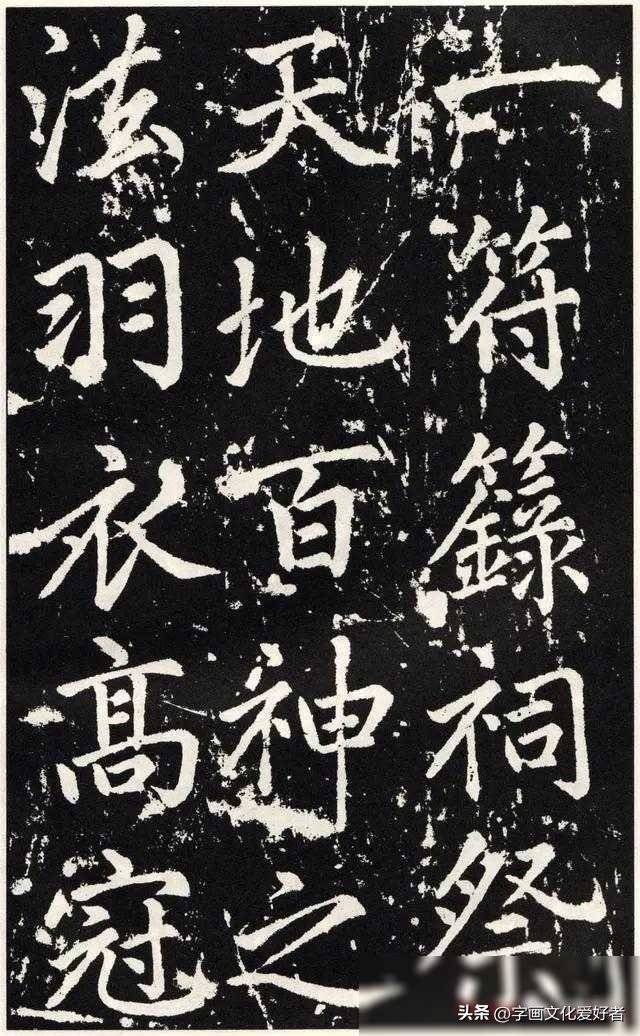 一符籙祠祭
天地百神之
法羽衣高冠
头条 @字画文化爱好者